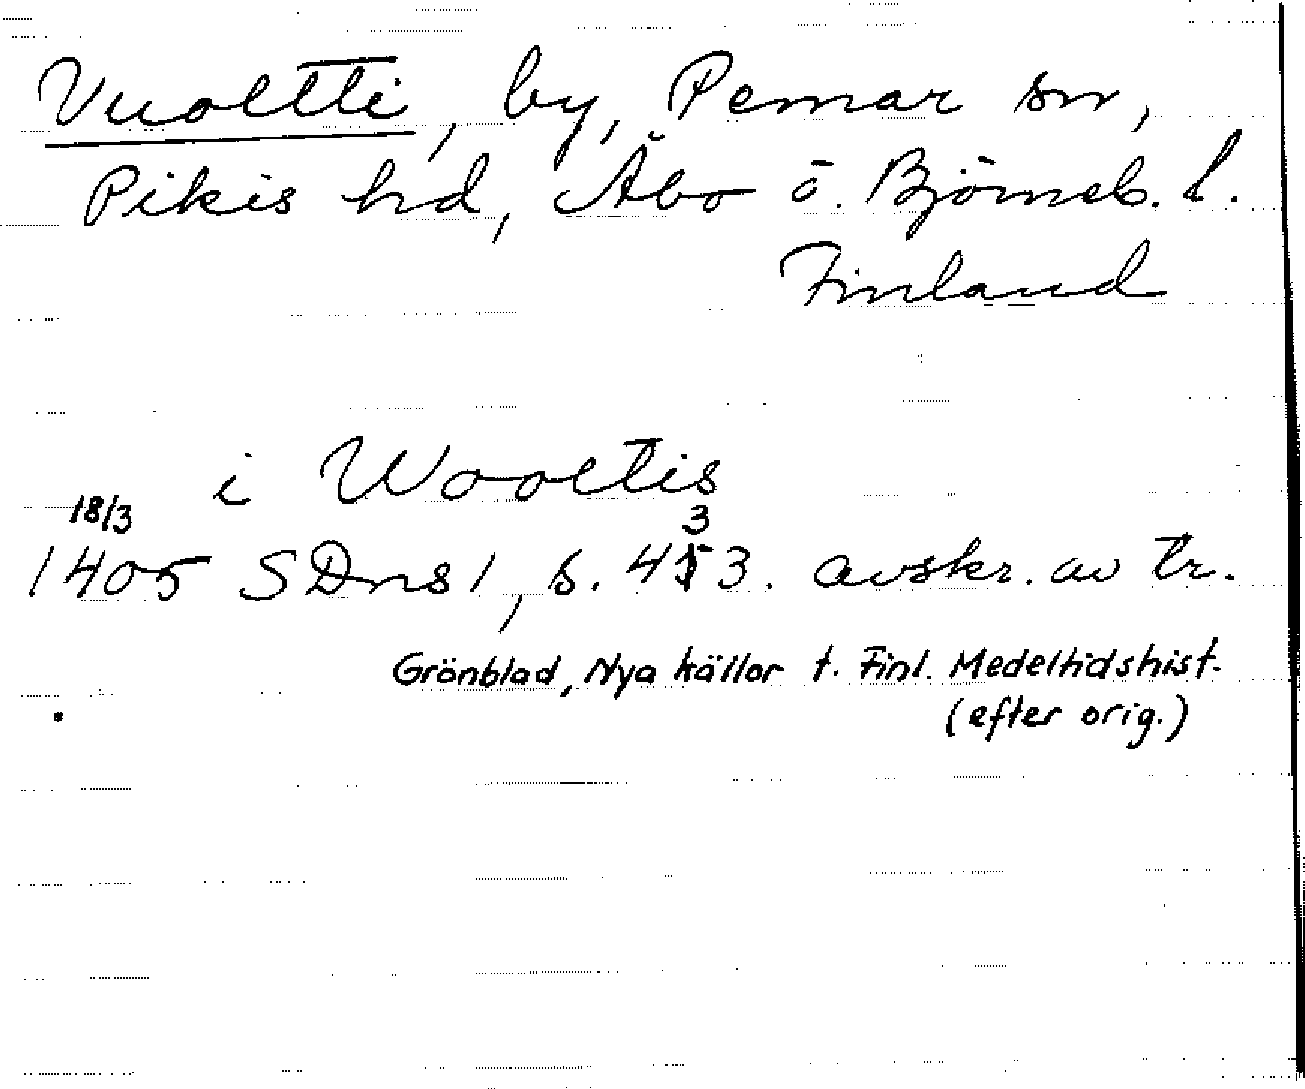 Vuoltti, by, Pemar sn,
Pikis hd, Åbo o. Björneb. l.
Finland
i Wooltis
18/3 3
1405 SDns 1, s. 453. avskr. av tr.
Grönblad, Nya källor t. Finl. Medeltidshist.
(efter orig.)